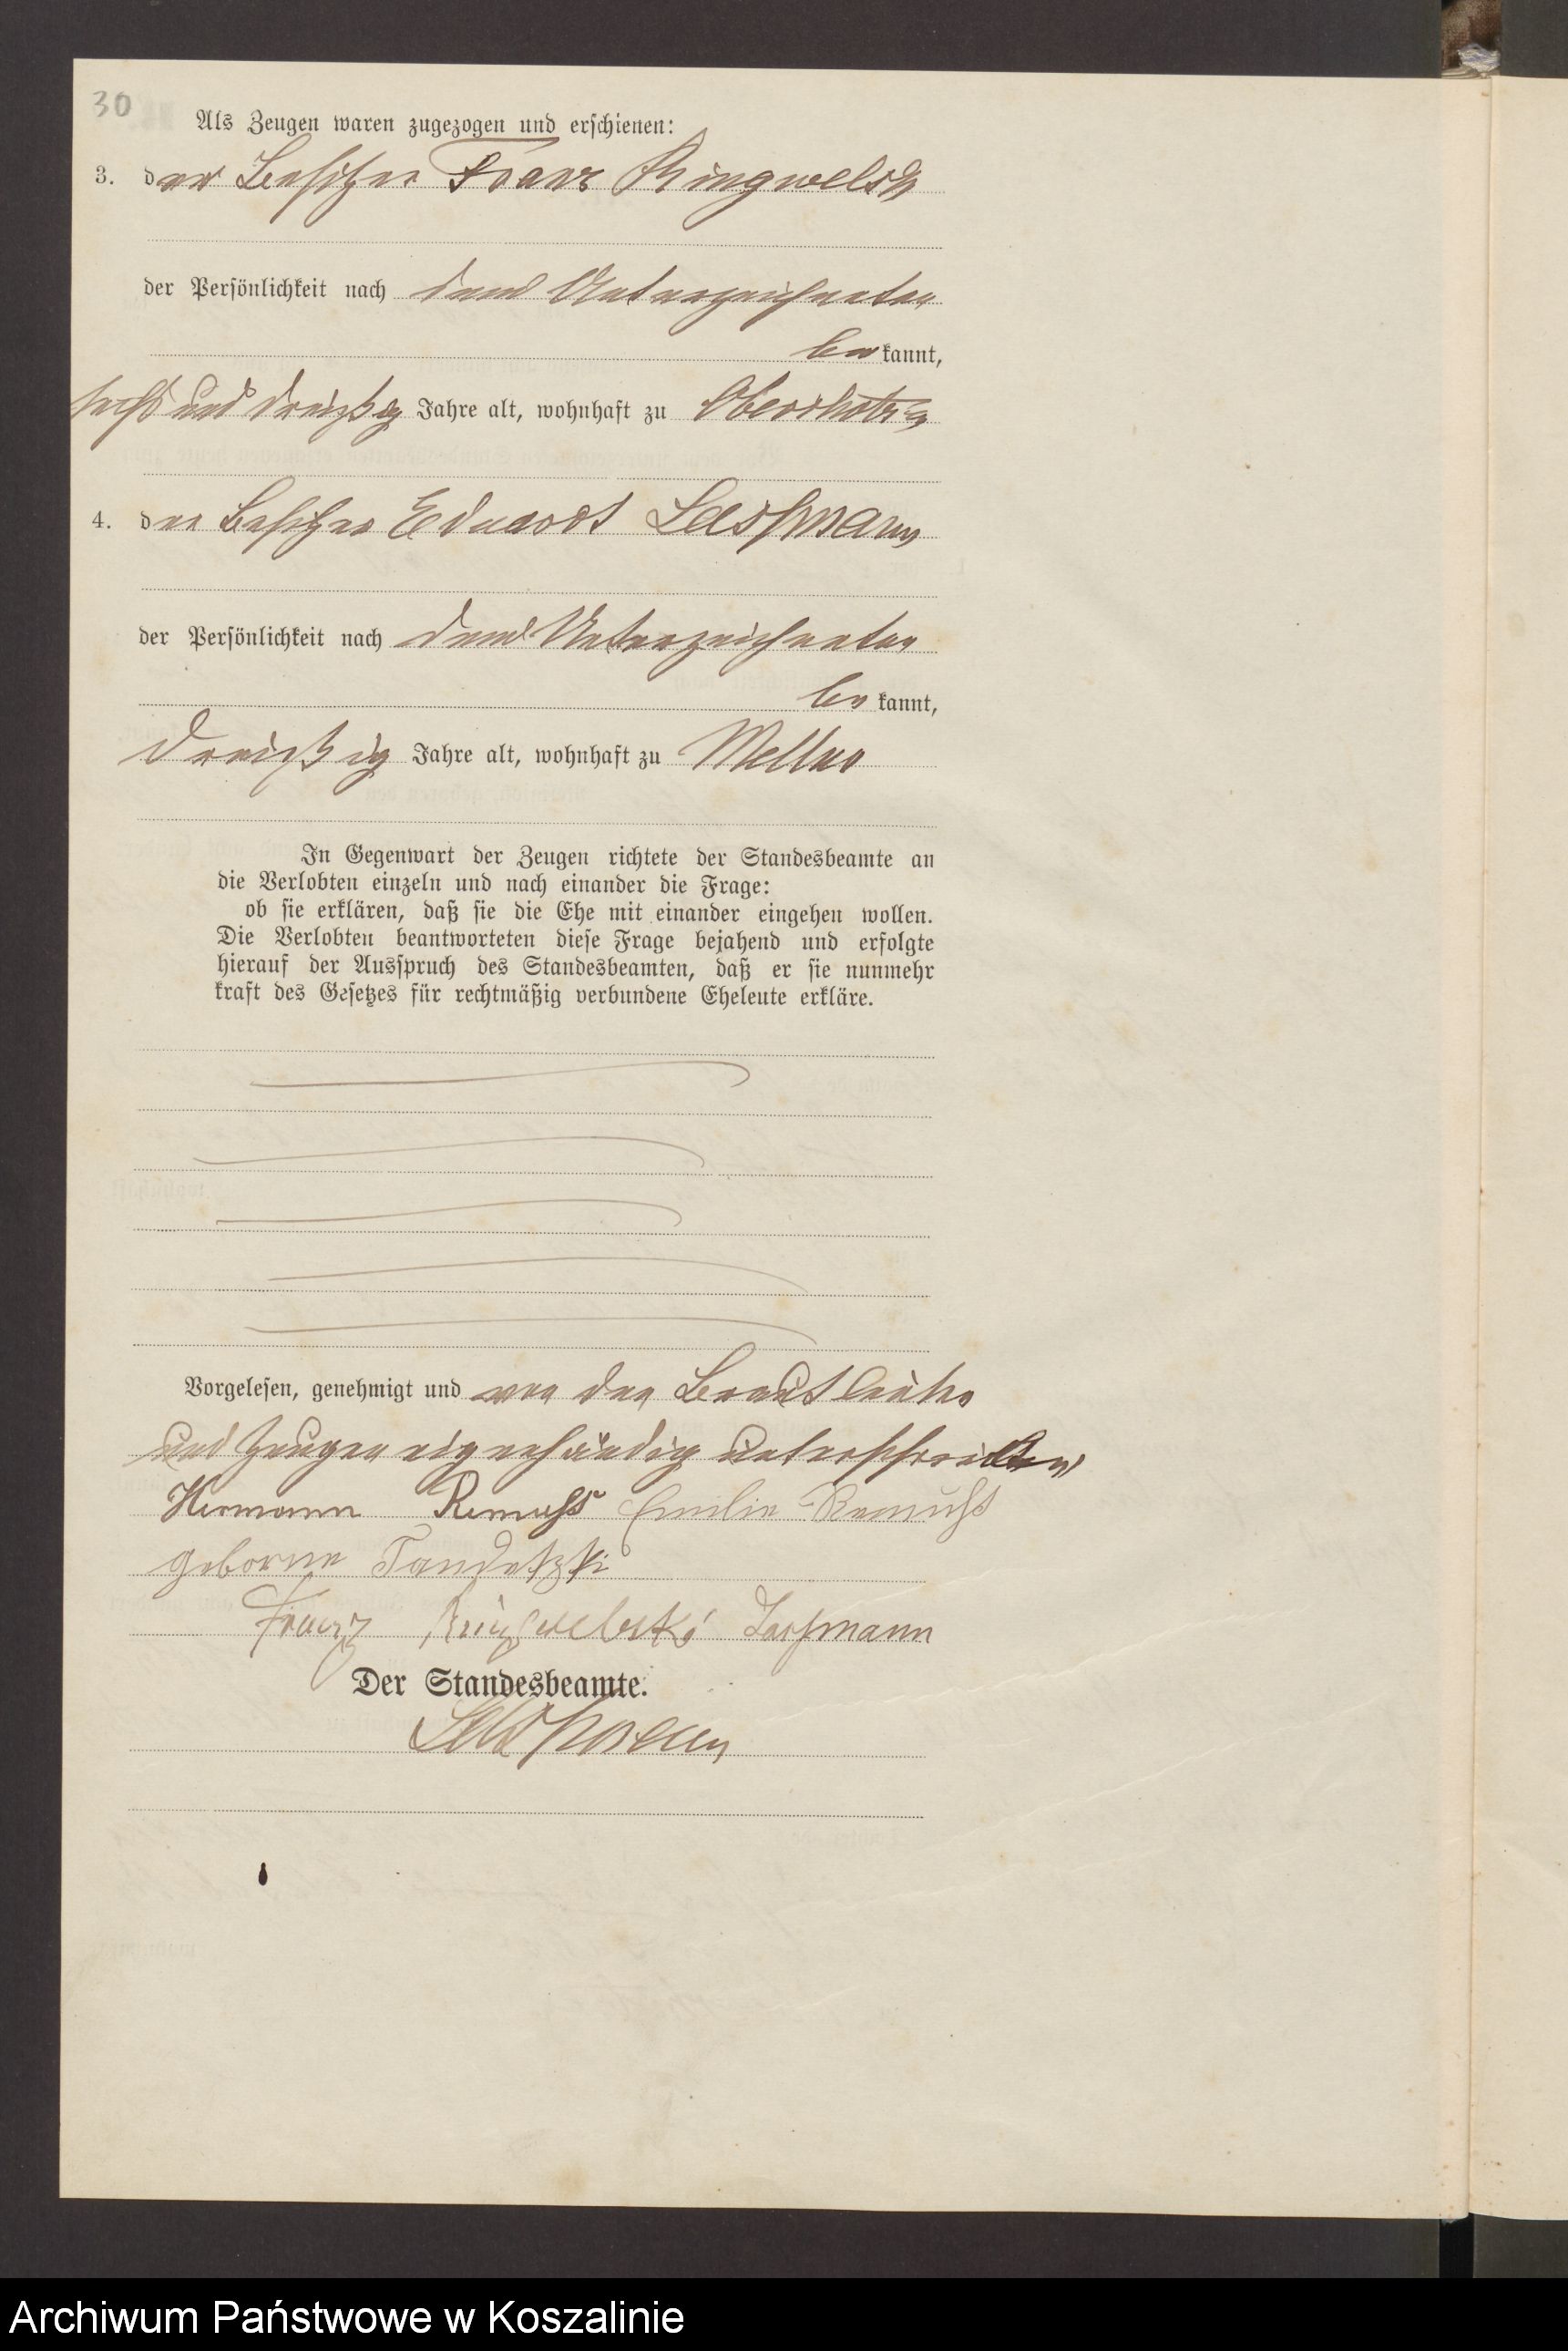 30
Als Zeugen waren zugezogen und erschienen:
3. der Besitzer Franz Ringwelski
der Persönlichkeit nach dem Unterzeichneten
be kannt,
sechs und dreißig Jahre alt, wohnhaft zu
4. der Besitzer Eduard Laschmann
der Persönlichkeit nach dem Unterzeichneten
be kannt,
dreißig Jahre alt, wohnhaft zu
In Gegenwart der Zeugen richtete der Standesbeamte an
die Verlobten einzeln und nach einander die Frage:
ob sie erklären, daß sie die Ehe mit einander eingehen wollen.
Die Verlobten beantworteten diese Frage bejahend und erfolgte
hierauf der Ausspruch des Standesbeamten, daß er sie nunmehr
kraft des Gesetzes für rechtmäßig verbundene Eheleute erkläre.
Vorgelesen, genehmigt und von den Brautleuten
und Zeugen eigenhändig unterschrieben
Hermann Remuss Emilie Remuss
geborne Tandetzki
Franz Ringwelski Laschmann
Der Standesbeamte.
Laschmann
Archiwum Państwowe w Koszalinie